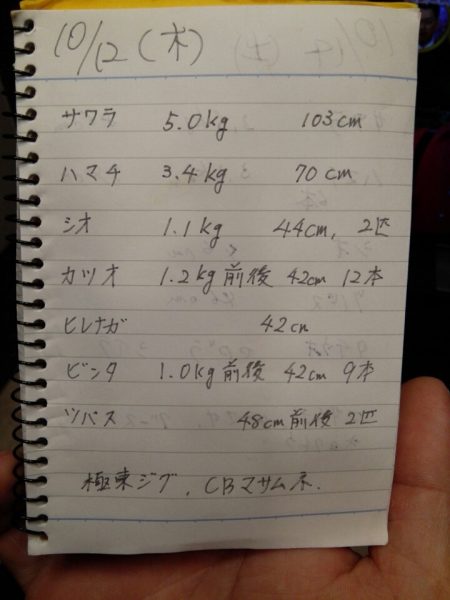 10/12 (木)
サワラ 5.0kg 103cm
ハマチ 3.4kg 70cm
シオ 1.1kg 44cm, 2匹
カツオ 1.2kg前後 42cm 12本
ヒレナガ 42cm
ビンタ 1.0kg前後 42cm 9本
ツバス 48cm前後 2匹
極東ジグ, CBマサムネ.